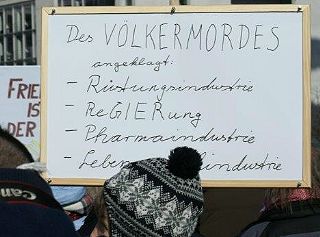 Des VÖLKERMORDES
angeklagt:
- Rüstungsindustrie
- ReGIERung
- Pharmaindustrie
- industrie
FRIE
IS
DER
Canon